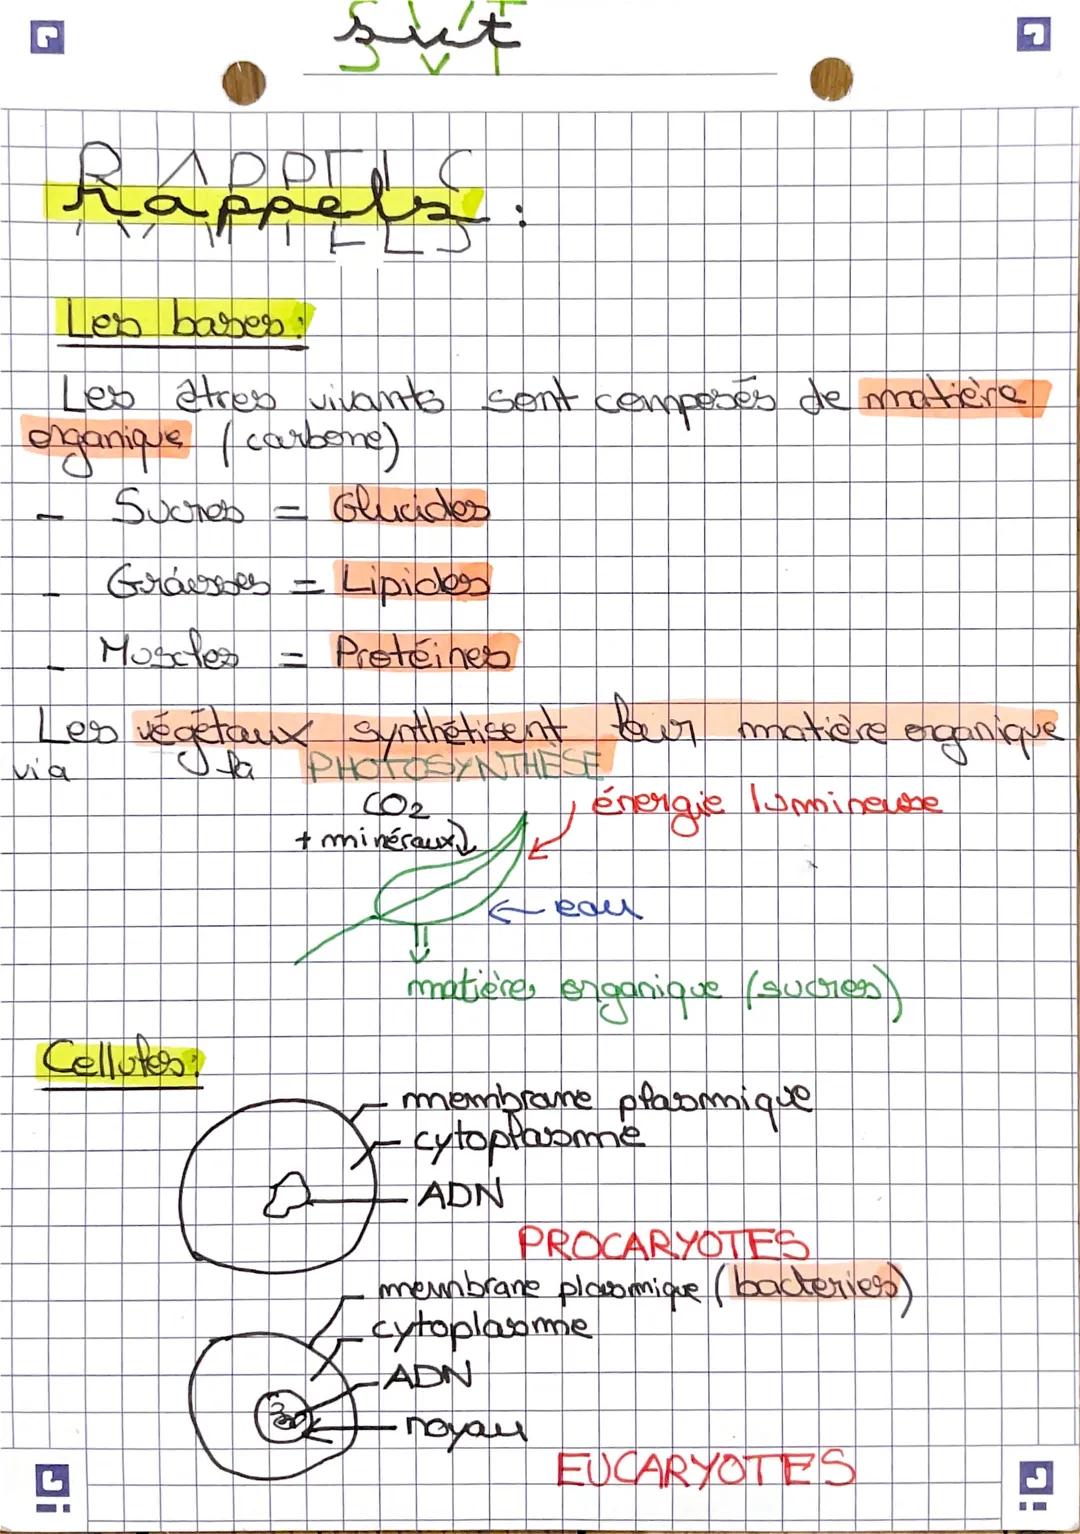 svt
SVT
RAPPELS
Rappels :
Les bases :
Les êtres vivants sont composés de matière
organique (carbone)
- Sucres = Glucides
- Graisses = Lipides
- Muscles = Protéines
Les végétaux synthétisent leur matière organique
via la PHOTOSYNTHÈSE
CO2
énergie lumineuse
+ minéraux
eau
matière organique (sucres)
Cellules :
membrane plasmique
cytoplasme
ADN
PROCARYOTES
membrane plasmique (bacteries)
cytoplasme
ADN
noyau
EUCARYOTES